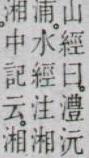 山經曰。澧沅
湘浦。水經注湘
中記云。湘